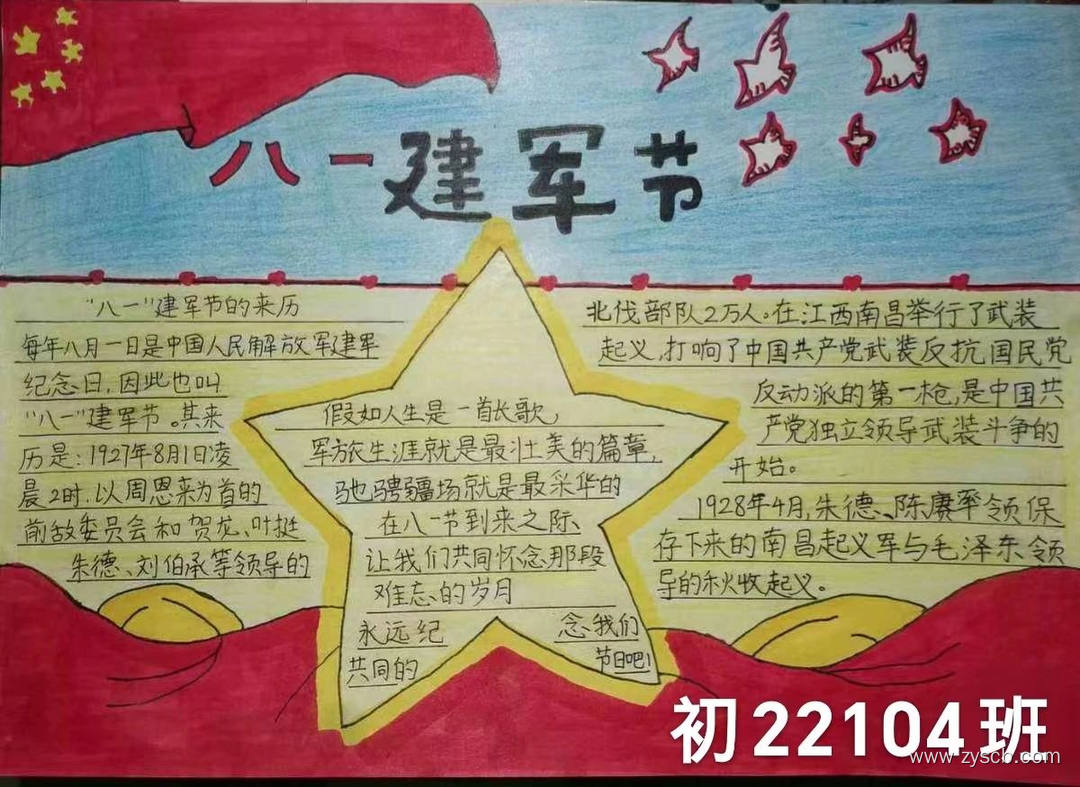 八一建军节
“八一”建军节的来历
每年八月一日是中国人民解放军建军
纪念日,因此也叫
“八一”建军节。其来
历是:1927年8月1日凌
晨2时,以周恩来为首的
前敌委员会和贺龙、叶挺
朱德、刘伯承等领导的
北伐部队2万人。在江西南昌举行了武装
起义,打响了中国共产党武装反抗国民党
反动派的第一枪,是中国共
产党独立领导武装斗争的
开始。
1928年4月,朱德、陈赓率领保
存下来的南昌起义军与毛泽东领
导的秋收起义。
假如人生是一首长歌,
军旅生涯就是最壮美的篇章,
驰骋疆场就是最采华的
在八一节到来之际、
让我们共同怀念那段
难忘的岁月
永远纪 念我们
共同的 节日吧!
初22104班
www.zyscb.com